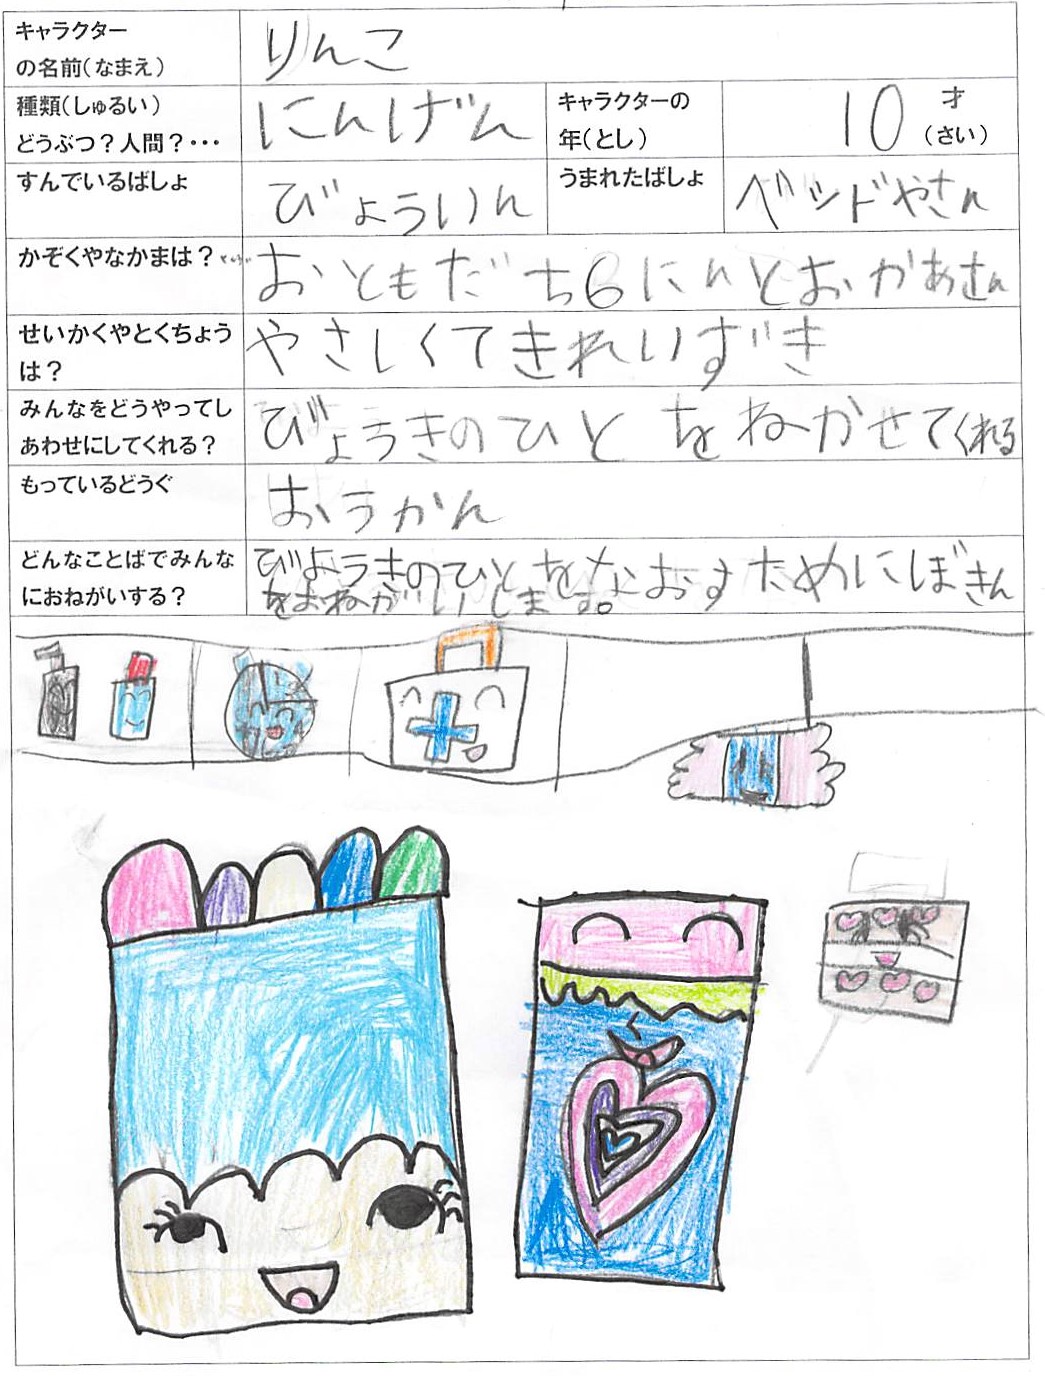 キャラクター
の名前(なまえ)
りんこ
種類(しゅるい)
どうぶつ?人間?・・・
にんげん
キャラクターの
年(とし)
10
才
(さい)
すんでいるばしょ
びょういん
うまれたばしょ
ベッドやさん
かぞくやなかまは?
おともだち6にんとおかあさん
せいかくやとくちょう
は?
やさしくてきれいずき
みんなをどうやってし
あわせにしてくれる?
びょうきのひとをねかせてくれる
もっているどうぐ
おうかん
どんなことばでみんな
におねがいする?
びようきのひとをなおすためにぼきん
をおねがいします。